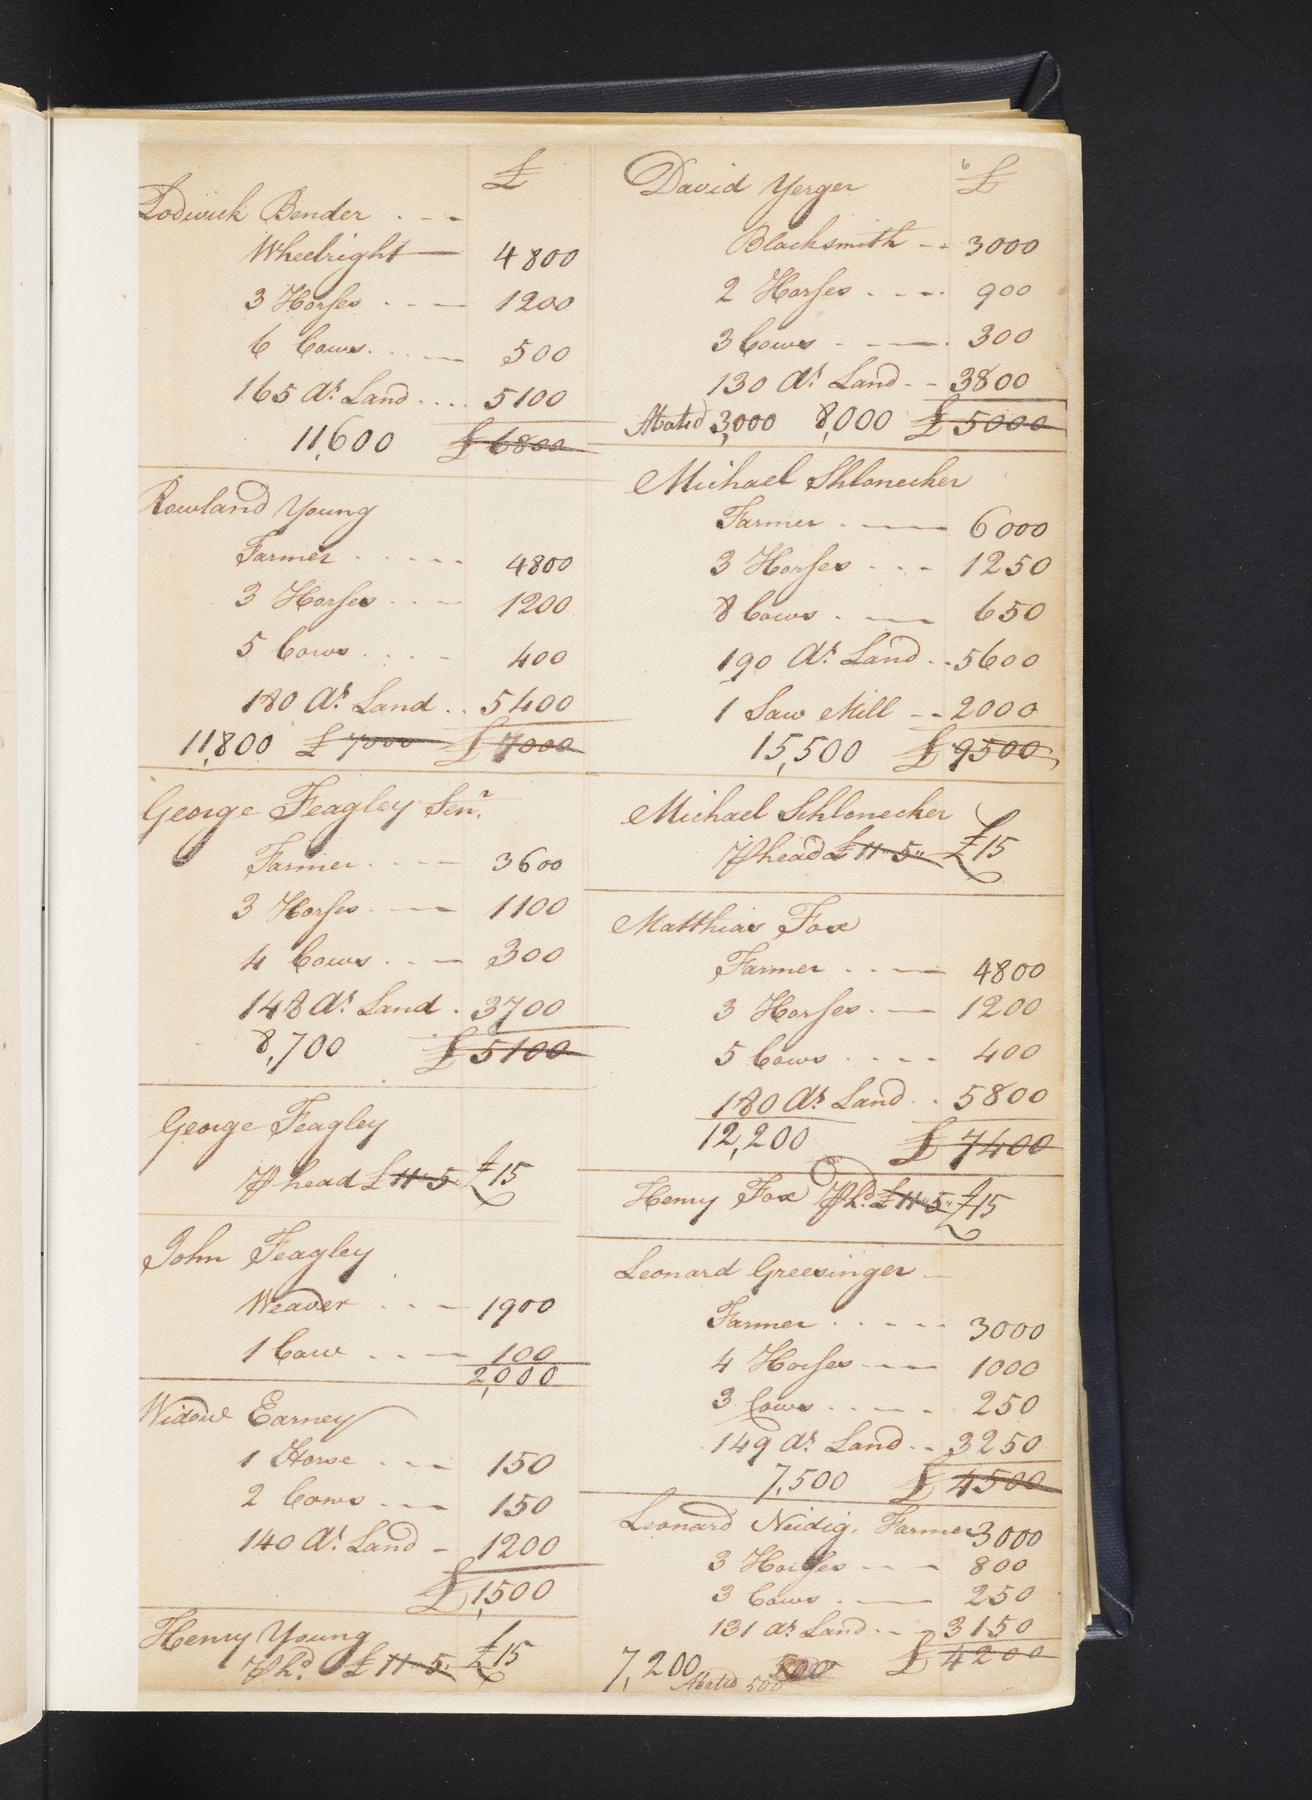 £
Lodwick Bender . - -
Wheelright — 4800
3 Horses . . - — 1200
6 Cows. . . . — 500
165 As. Land . . . . 5100
11,600 £ 6800
Rowland Young
Farmer . . - - - 4800
3 Horses . . - 1200
5 Cows . . . - 400
180 As. Land . . 5400
11,800 £ 7000 £ 7000
George Feagley Senr.
Farmer . . - — 3600
3 Horses . — 1100
4 Cows . . — 300
148 As. Land . 3700
8,700 £ 5100
George Feagley
P head £ 11"5 £15
John Feagley
Weaver . . - — 1900
1 Cow . . — 100
2,000
Widow Earney
1 Horse . - - 150
2 Cows . . - 150
140 As. Land - 1200
£ 1,500
Henry Young
P hd. £ 11"5 £15
6 £
David Yerger
Blacksmith - - 3000
2 Horses . - - . 900
3 Cows - — . 300
130 As. Land . - 3800
Abated 3,000 8,000 £ 5000
Michael Shlonecker
Farmer . — 6000
3 Horses . . - 1250
8 Cows . — 650
190 As. Land . . 5600
1 Saw Mill - - 2000
15,500 £ 9500
Michael Schlonecker
P head £ 11"5" £15
Matthias Fox
Farmer . . — 4800
3 Horses . — 1200
5 Cows . . - - 400
180 As. Land . . 5800
12,200 £ 7400
Henry Fox P hd. £ 11"5" £15
Leonard Greesinger -
Farmer . . . - - 3000
4 Horses - - — 1000
3 Cows . . - - . 250
149 As. Land . . 3250
7,500 £ 4500
Leonard Neidig, Farmer 3000
3 Horses - - - 800
3 Cows . — 250
131 As. Land . . - 3150
7,200 500 £ 4200
Abated 500